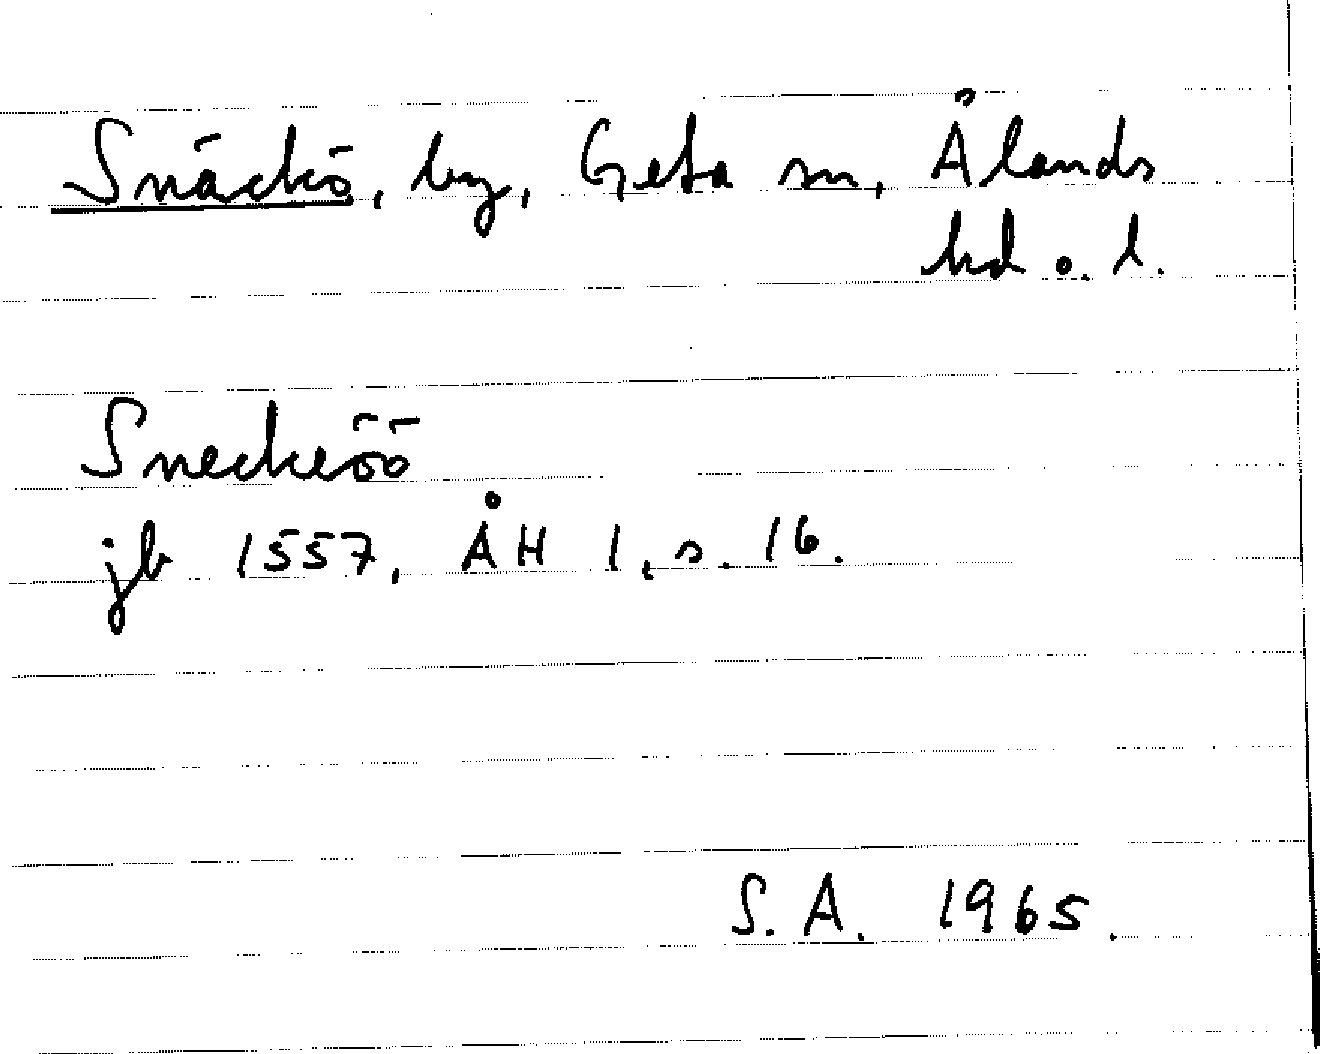 Snäckö, by, Geta sn, Ålands
hd o. l.
Sneckeöö
jb 1557, ÅH 1, s. 16.
S. A. 1965.